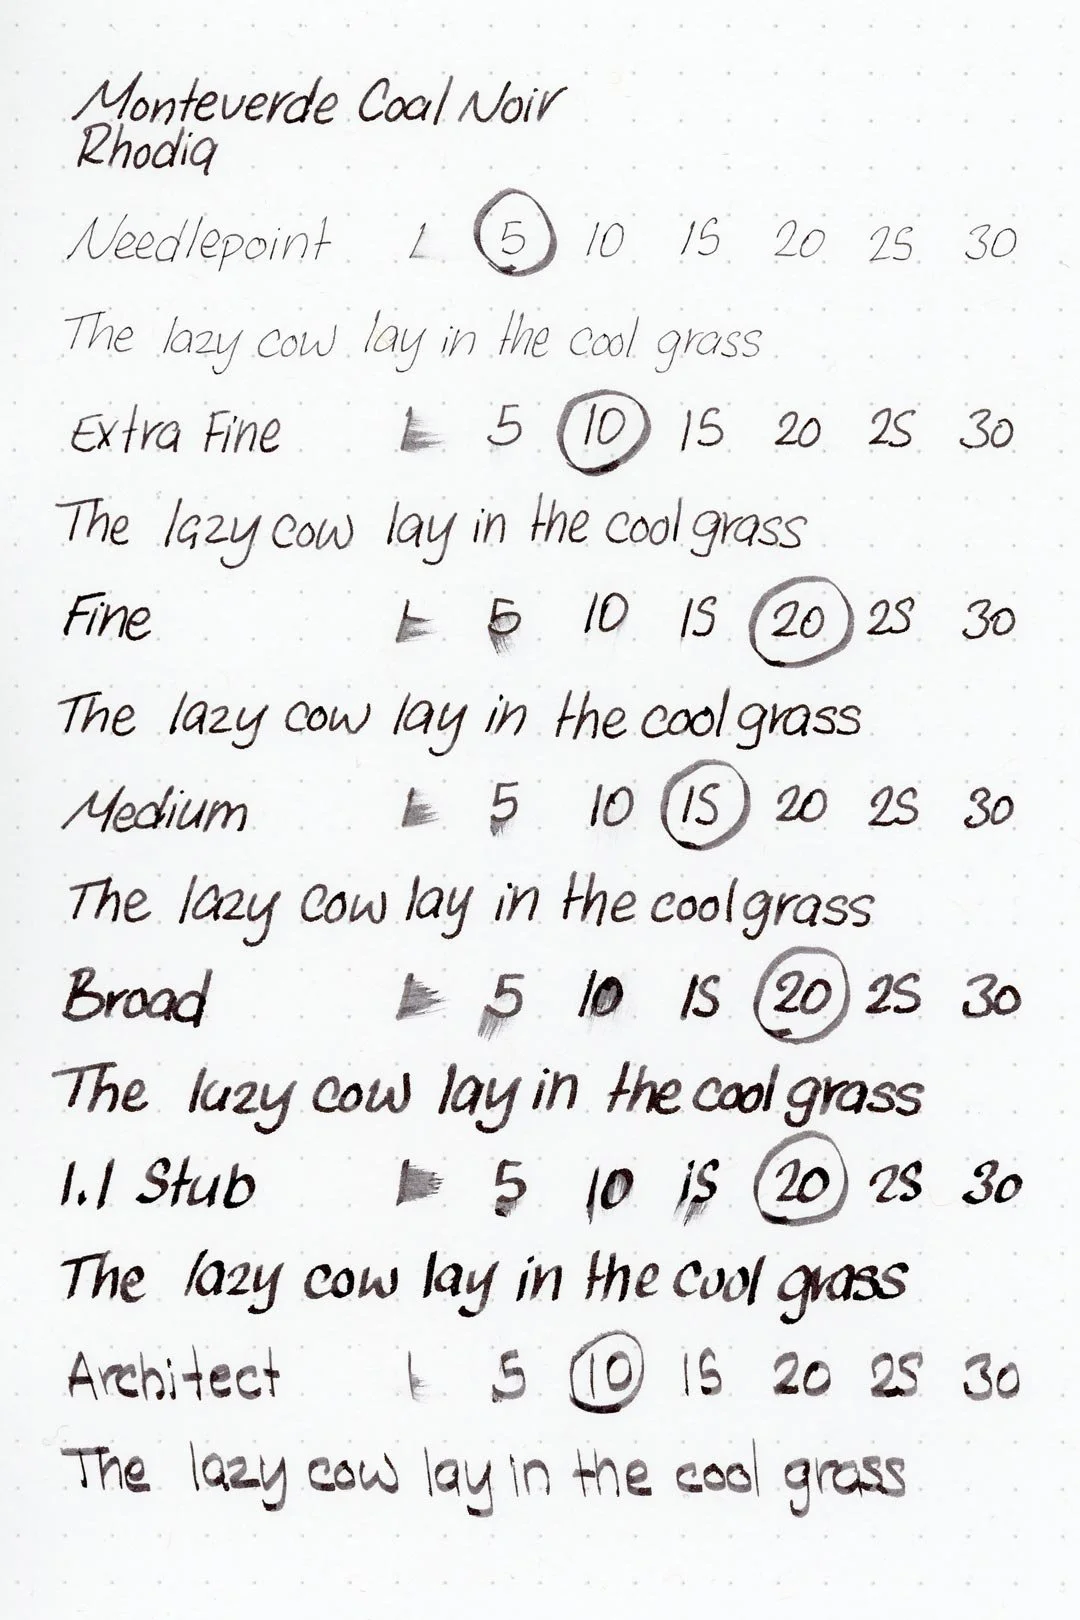 Monteverde Coal Noir
Rhodia
Needlepoint 1 5 10 15 20 25 30
The lazy cow lay in the cool grass
Extra Fine 1 5 10 15 20 25 30
The lazy cow lay in the cool grass
Fine 1 5 10 15 20 25 30
The lazy cow lay in the cool grass
Medium 1 5 10 15 20 25 30
The lazy cow lay in the cool grass
Broad 1 5 10 15 20 25 30
The lazy cow lay in the cool grass
1.1 Stub 1 5 10 15 20 25 30
The lazy cow lay in the cool grass
Architect 1 5 10 15 20 25 30
The lazy cow lay in the cool grass